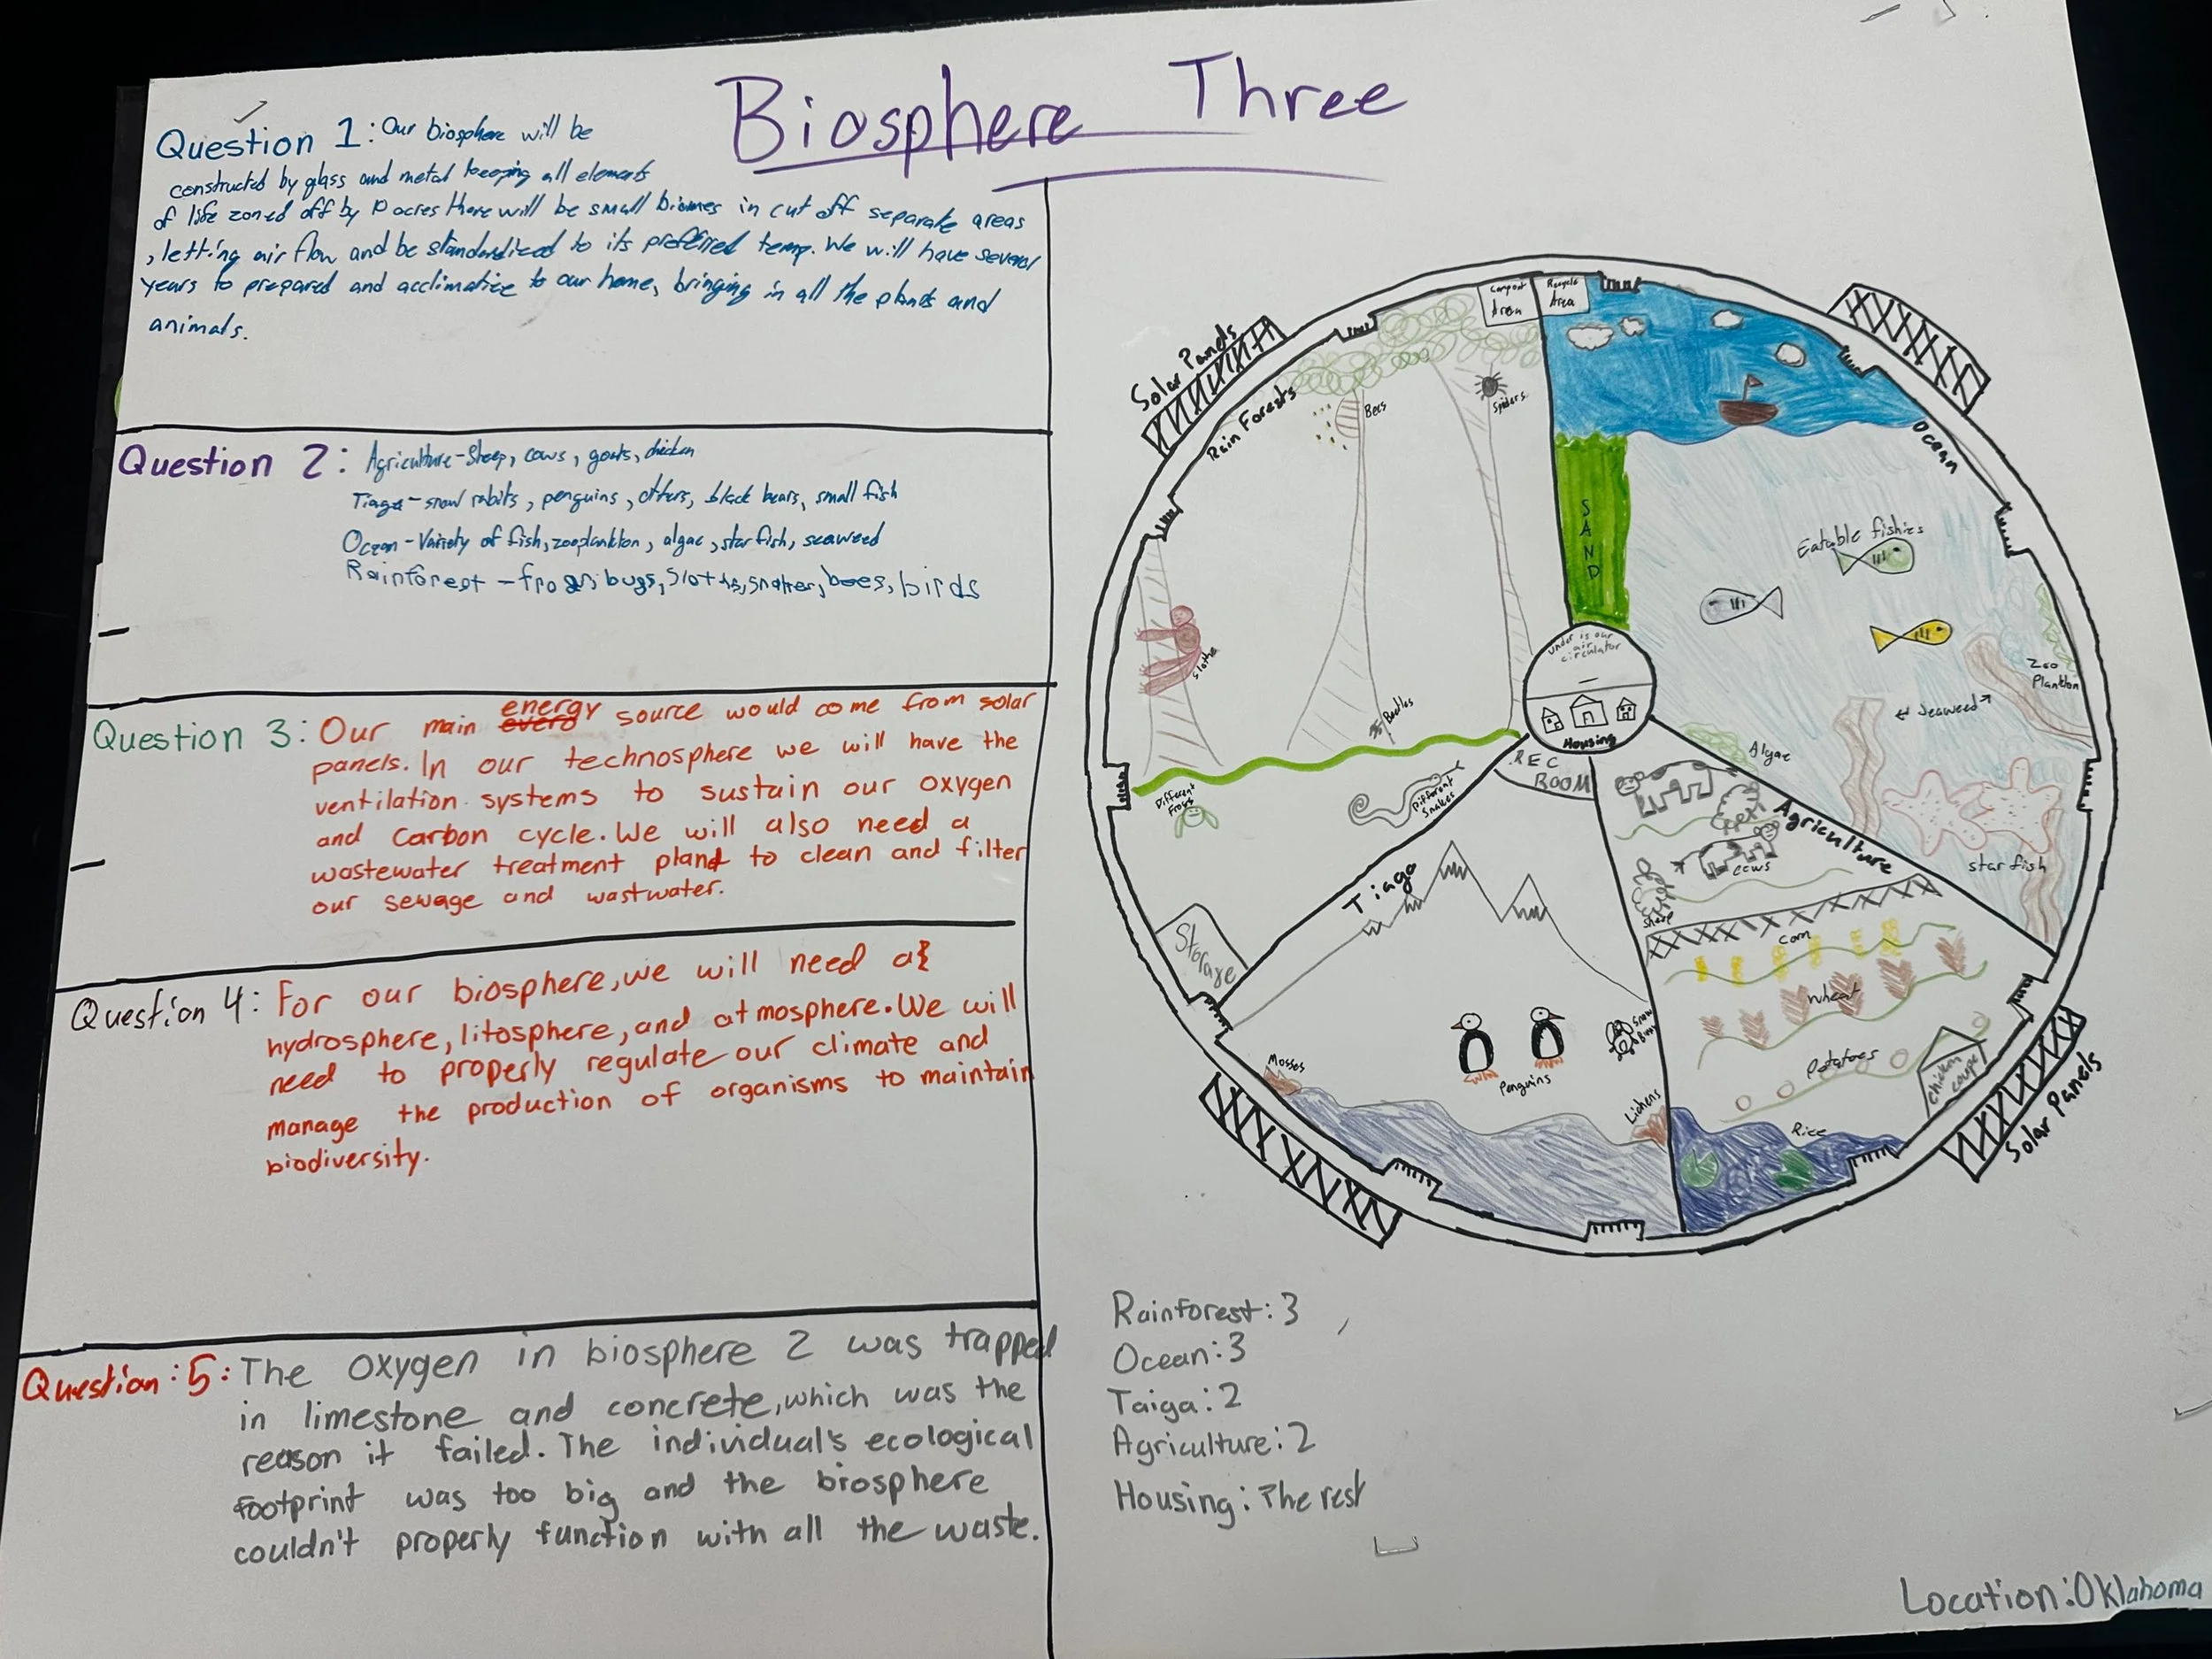 Biosphere Three
Question 1: Our biosphere will be
constructed by glass and metal keeping all elements
of life zoned off by 10 acres there will be small biomes in cut off separate areas
, letting air flow and be standardized to its preffried temp. We will have several
years to prepared and acclimatize to our home, bringing in all the plants and
animals.
Question 2: Agriculture-Sheep, cows, goats, chicken
Tiaga-snow rabits, penguins, otters, black bears, small fish
Ocean-Variety of fish, zooplankton, algae, star fish, seaweed
Rainforest-frogs, bugs, Sloths, snakes, bees, birds
Question 3: Our main energy source would come from solar
panels. In our technosphere we will have the
ventilation systems to sustain our oxygen
and carbon cycle. We will also need a
wastewater treatment plant to clean and filter
our sewage and wastwater.
Question 4: For our biosphere, we will need a
hydrosphere, litosphere, and atmosphere. We will
need to properly regulate our climate and
manage the production of organisms to maintain
biodiversity.
Question: 5: The oxygen in biosphere 2 was trapped
in limestone and concrete, which was the
reason it failed. The individual's ecological
footprint was too big and the biosphere
couldn't properly function with all the waste.
Solar Panels
Rain Forests
Compost
Area
Recycle
Area
Bees
Spiders
Slothe
Beetles
Different
Frogs
Different
Snakes
Storage
SAND
Ocean
Eatable fishies
Zoo
Plankton
Seaweed
Algae
star fish
under is our
air
circulator
Housing
REC
ROOM
Agriculture
cows
Sheep
corn
wheat
Potatoes
chicken
coupe
Rice
Solar Panels
Tiaga
Penguins
Snow
Mosses
Lichens
Rainforest: 3
Ocean: 3
Taiga: 2
Agriculture: 2
Housing: The rest
Location: Oklahoma